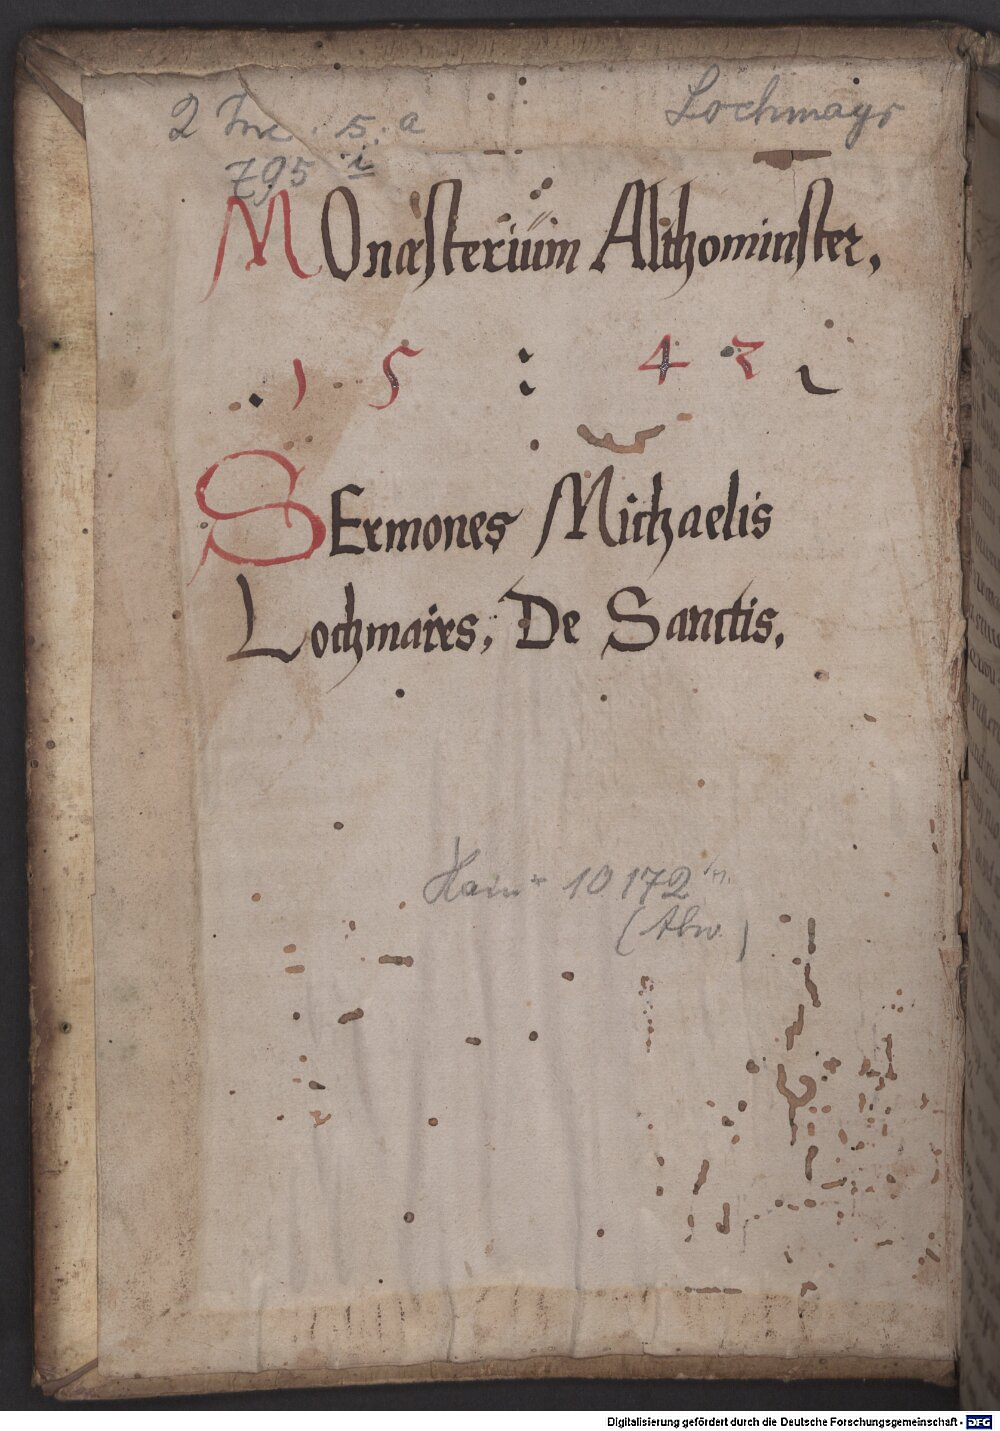 2 Inc. s. a. Lochmayr
795 i
MOnasterium Allthominster.
. 1 5 : 4 3
SErmones Michaelis
Lochmaires, De Sanctis.
Hain* 10172
(Abw.)
Digitalisierung gefördert durch die Deutsche Forschungsgemeinschaft - DFG